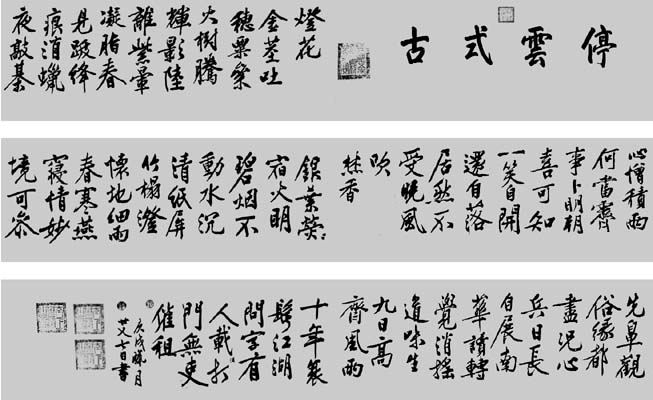 停雲式古
燈花
金莖吐
穗粟粲
大樹騰
輝影陸
離紫暈
凝脂春
見跋絳
痕消蠟
夜敲棊
心憎積雨
何當霽
事卜明朝
喜可知
一笑自開
還自落
居然不
受晚風
吹
焚香
銀葉熒〻
宿火明
碧烟不
動水沉
清紙屏
竹榻澄
懷地細雨
春寒燕
寢情妙
境可參
先鼻觀
俗緣都
盡洗心
兵日長
自展南
華讀轉
覺逍搖
道味生
九日高
齋風雨
十年衰
鬢江湖
問字有
人載打
門無吏
催租
庚戌臘月
書